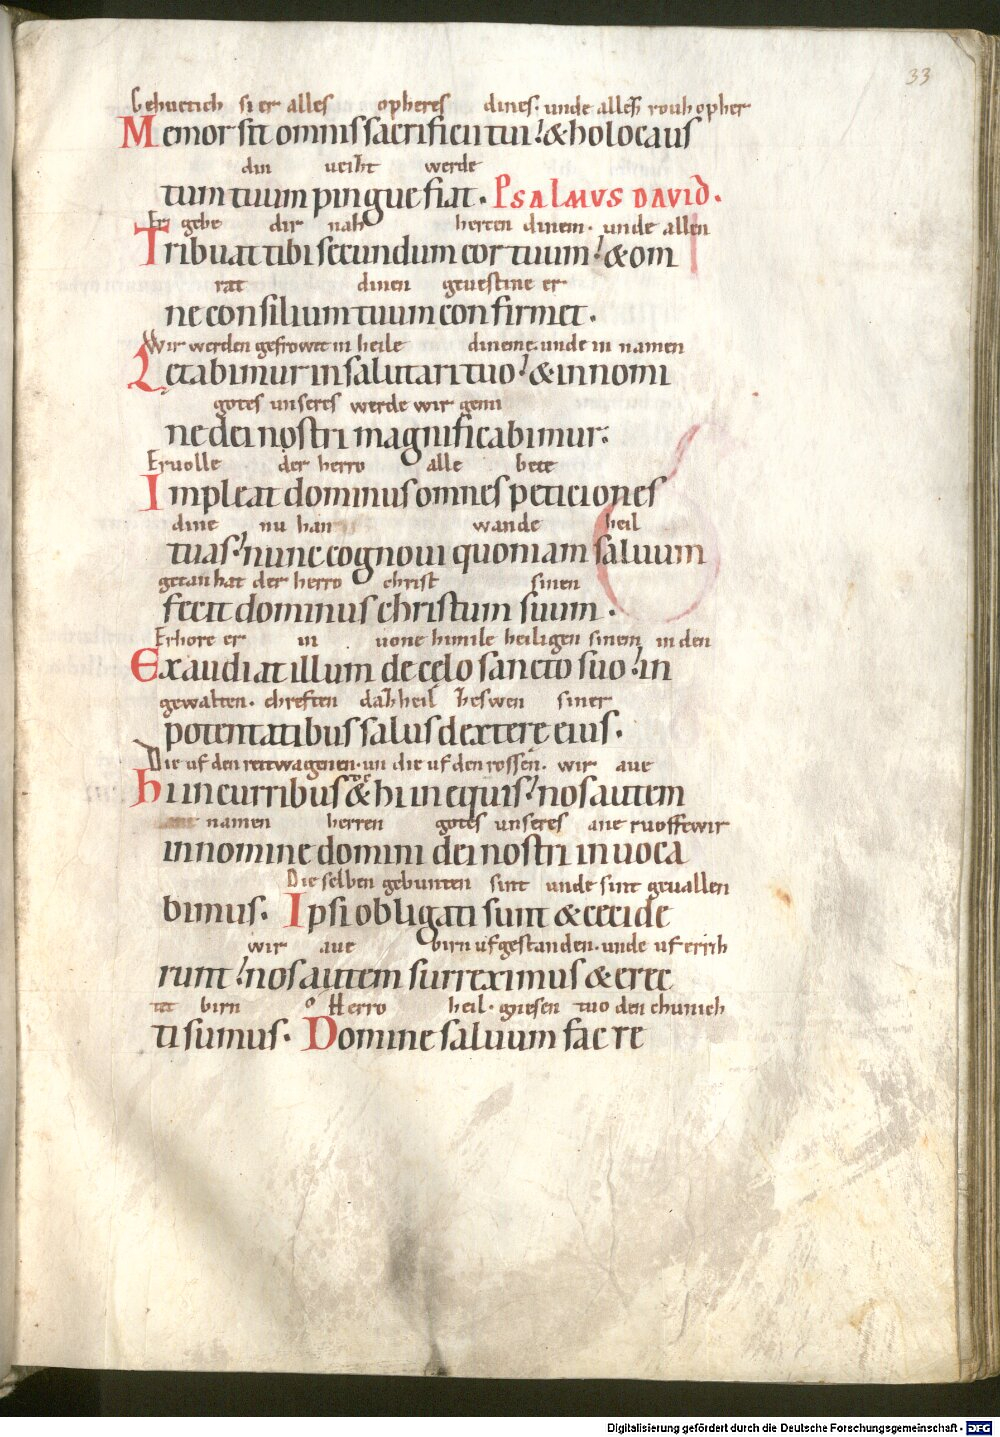 33
Gehuctich si er alles opheres dines. unde alles rouh opher
Memor sit omnis sacrificii tui. & holocaus
din veiht werde
tum tuum pingue fiat. PSALMVS DAVID.
Er gebe dir nah herten dinem. unde allen
Tribuat tibi secundum cor tuum. & om
rat dinen geuestine er
ne consilium tuum confirmet.
Wir werden gefrowet in heile dineme. unde in namen
Letabimur in salutari tuo. & in nomi
gotes unseres werde wir
ne dei nostri magnificabimur.
Eruolle der herro alle bete
Impleat dominus omnes peticiones
dine nu han wande heil
tuas. nunc cognoui quoniam saluum
getan hat der herro christ sinen
fecit dominus christum suum.
Erhore er in uone himile heiligen sinem in den
Exaudiat illum de celo sancto suo. in
gewalten. chreften daz heil zeswen siner
potentatibus salus dextere eius.
Die uf den reitwagenen. un die uf den rossen. wir aue
Hi in curribus & hi in equis. nos autem
namen herren gotes unseres ane ruoffe wir
in nomine domini dei nostri inuoca
Die selben gebunten sint unde sint geuallen
bimus. Ipsi obligati sunt & cecide
wir aue birn uf gestanden. unde uf errih
runt. nos autem surreximus & erec
tit birn o Herro heil. gniesen tuo den chunich
ti sumus. Domine saluum fac re
Digitalisierung gefördert durch die Deutsche Forschungsgemeinschaft - DFG